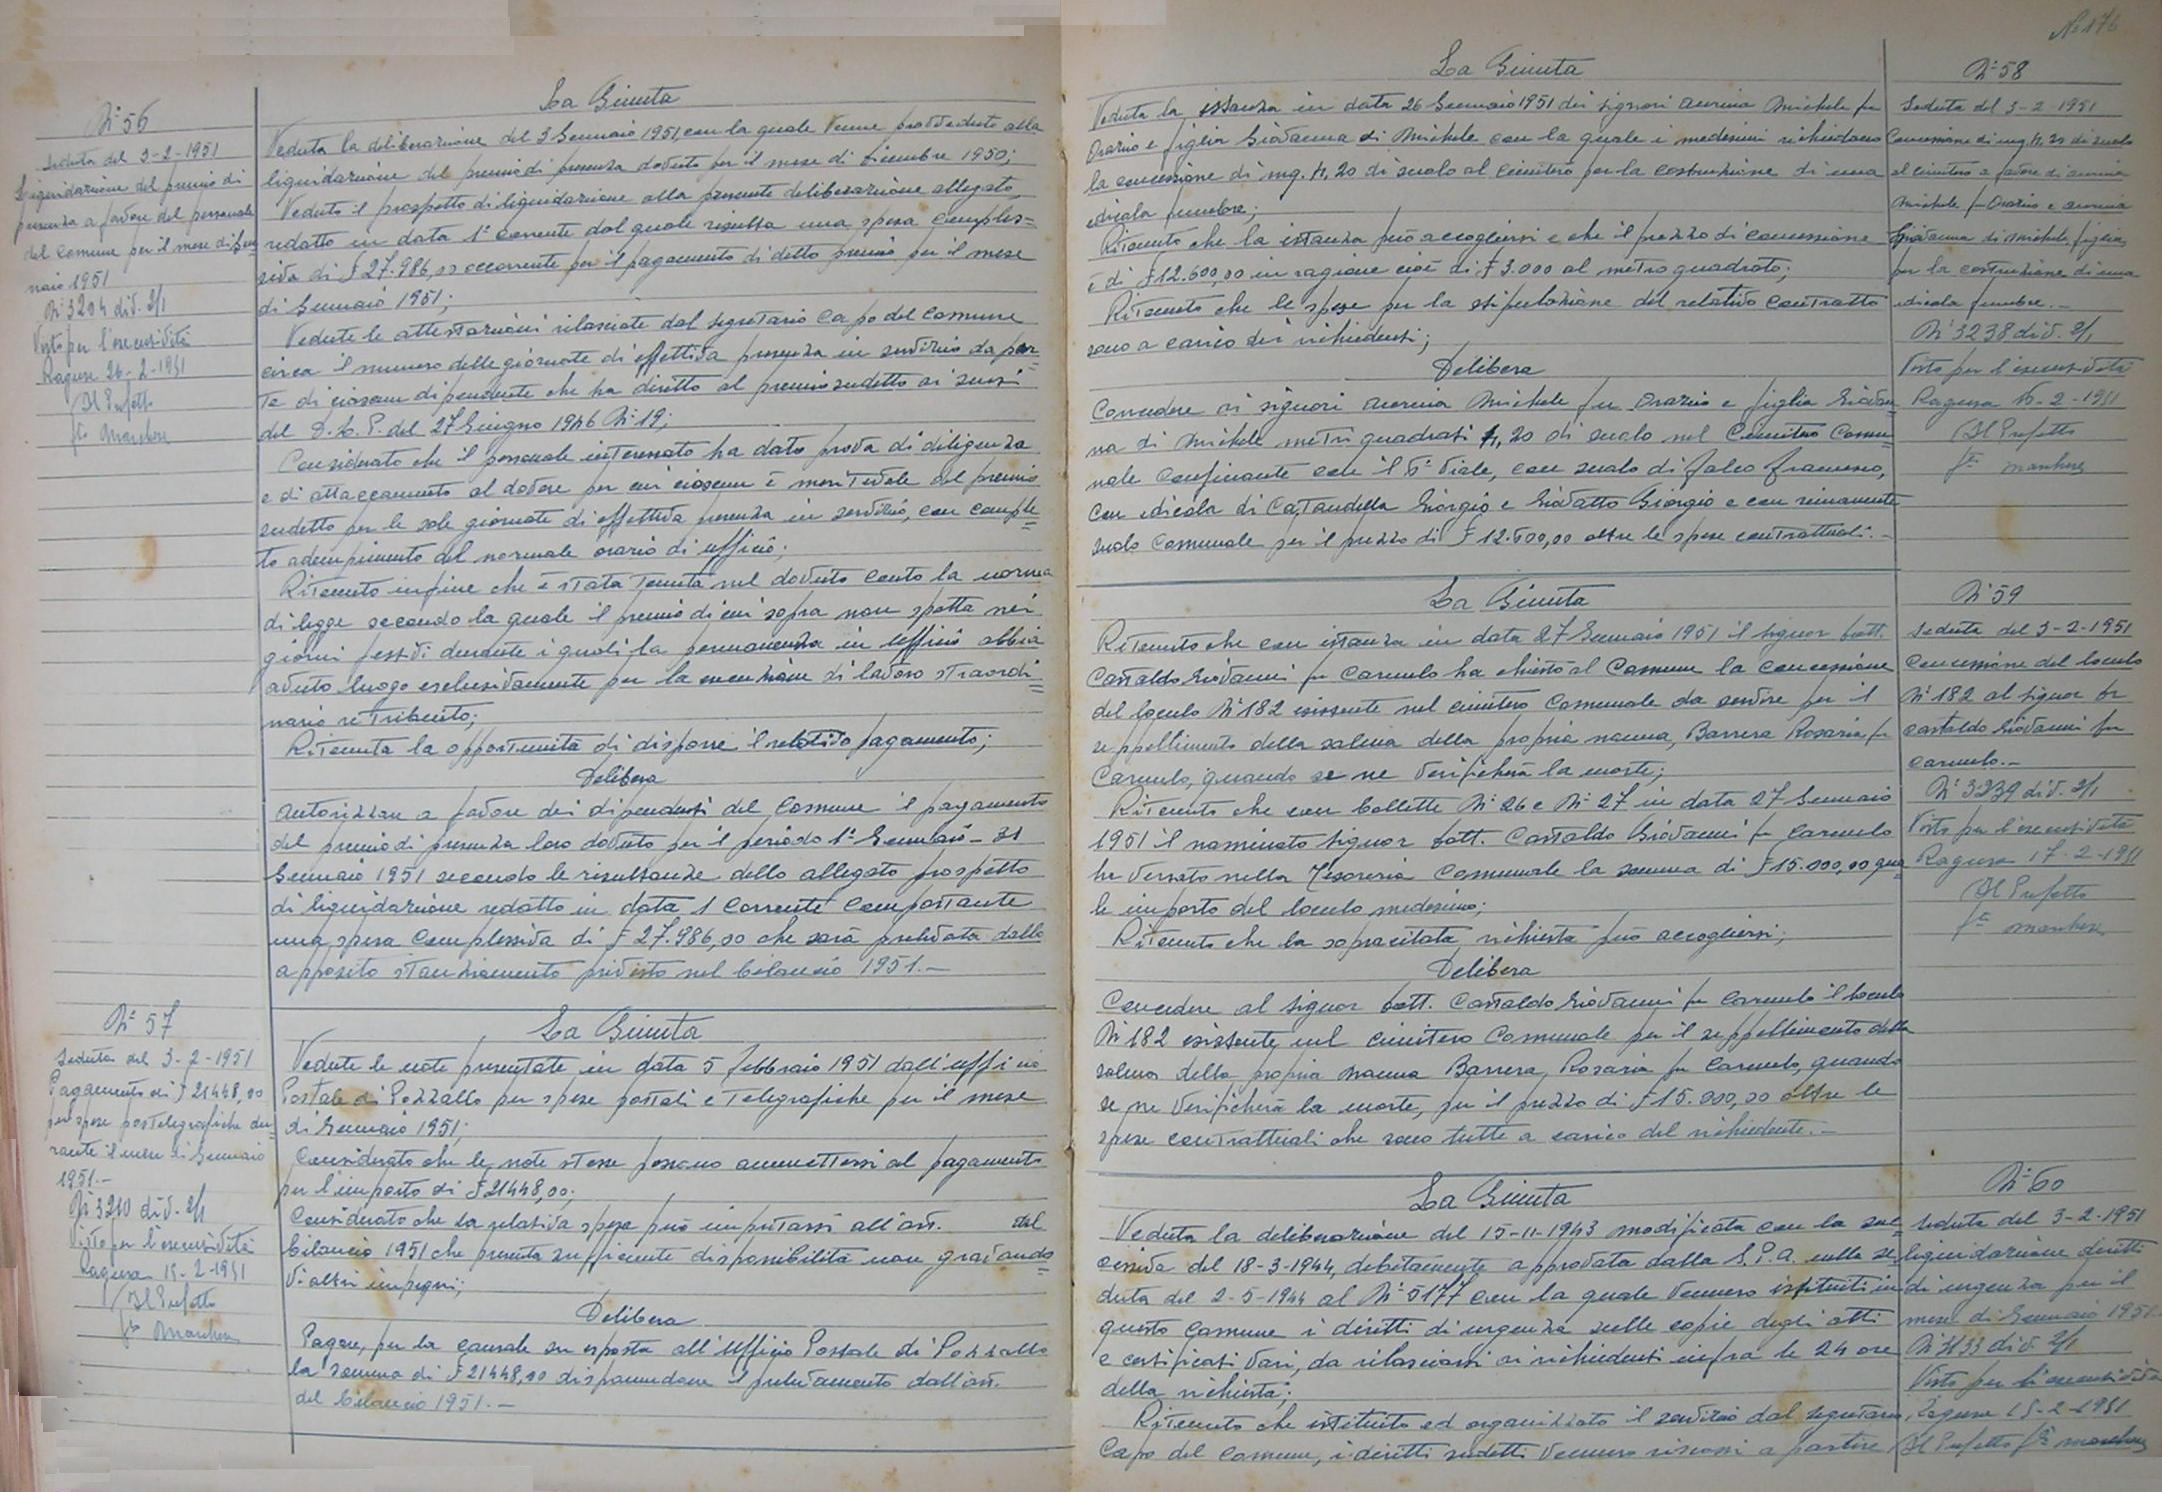 N° 56
Seduta del 3-2-1951
Liquidazione del premio di
presenza a favore del personale
del Comune per il mese di Gen
naio 1951
N° 3204 div. 2/1
Visto per l'esecutività
Ragusa 26-2-1951
Il Prefetto
La Giunta
Veduta la deliberazione del 3 Gennaio 1951, con la quale venne provveduto alla
liquidazione del premio di presenza dovuto per il mese di Dicembre 1950;
Veduto il prospetto di liquidazione alla presente deliberazione allegato,
redatto in data 1° corrente dal quale risulta una spesa comples=
siva di £ 27.986,00 occorrente per il pagamento di detto premio per il mese
di Gennaio 1951;
Vedute le attestazioni rilasciate dal Segretario Capo del Comune
circa il numero delle giornate di effettiva presenza in servizio da par=
te di ciascun dipendente che ha diritto al premio sudetto ai sensi
del D.L.P. del 27 Giugno 1946 N° 19;
Considerato che il personale interessato ha dato prova di diligenza
e di attaccamento al dovere per cui ciascun è meritevole del premio
sudetto per le sole giornate di effettiva presenza in servizio, con comple=
to adempimento del normale orario di ufficio;
Ritenuto infine che è stata tenuta nel dovuto conto la norma
di legge secondo la quale il premio di cui sopra non spetta nei
giorni festivi durante i quali la permanenza in Ufficio abbia
avuto luogo esclusivamente per la esecuzione di lavoro straordi=
nario retribuito;
Ritenuta la opportunità di disporre il relativo pagamento;
Delibera
Autorizzare a favore dei dipendenti del Comune il pagamento
del premio di presenza loro dovuto per il periodo 1° Gennaio - 31
Gennaio 1951 secondo le risultanze dello allegato prospetto
di liquidazione redatto in data 1 corrente comportante
una spesa complessiva di £ 27.986,00 che sarà prelevata dallo
apposito stanziamento previsto nel bilancio 1951.-
N° 57
Seduta del 3-2-1951
Pagamento di £ 21448,00
per spese postelegrafiche du=
rante il mese di Gennaio
1951.-
N° 3210 div. 2/1
Visto per l'esecutività
Ragusa 15-2-1951
Il Prefetto
La Giunta
Vedute le note presentate in data 5 febbraio 1951 dall'ufficio
Postale di Pozzallo per spese postali e telegrafiche per il mese
di Gennaio 1951;
Considerato che le note stesse possono ammettersi al pagamento
per l'importo di £ 21448,00;
Considerato che la relativa spesa può imputarsi all'art. del
bilancio 1951 che presenta sufficiente disponibilità non gravando=
vi altri impegni;
Delibera
Pagare, per la causale su esposta all'Ufficio Postale di Pozzallo
la somma di £ 21448,00 disponendone il prelevamento dall'art.
del bilancio 1951.-
N° 176
La Giunta
Veduta la istanza in data 26 Gennaio 1951 dei signori Aurnia Michele fu
Orazio e figlia Giovanna di Michele con la quale i medesimi richiedono
la concessione di mq. 4,20 di suolo al Cimitero per la costruzione di una
edicola funebre;
Ritenuto che la istanza può accogliersi e che il prezzo di concessione
è di £ 12.600,00 in ragione cioè di £ 3.000 al metro quadrato;
Ritenuto che le spese per la stipulazione del relativo contratto
sono a carico dei richiedenti;
Delibera
Concedere ai signori Aurnia Michele fu Orazio e figlia Giovan=
na di Michele metri quadrati 4,20 di suolo nel Cimitero Comu=
nale confinante con il 5° viale, con suolo di Falco Francesco,
con edicola di Cataudella Giorgio e Giovatto Giorgio e con rimanente
suolo Comunale per il prezzo di £ 12.600,00 oltre le spese contrattuali.-
N° 58
Seduta del 3-2-1951
Concessione di mq. 4,20 di suolo
al cimitero a favore di Aurnia
Michele fu Orazio e Aurnia
Giovanna di Michele, figlia,
per la costruzione di una
edicola funebre.-
N° 3238 div. 2/1
Visto per l'esecutività
Ragusa 15-2-1951
Il Prefetto
La Giunta
Ritenuto che con istanza in data 27 Gennaio 1951 il signor Dott.
Castaldo Giovanni fu Carmelo ha chiesto al Comune la concessione
del loculo N° 182 esistente nel cimitero Comunale da servire per il
seppellimento della salma della propria mamma, Barrera Rosaria fu
Carmelo, quando se ne verificherà la morte;
Ritenuto che con bollette N° 26 e N° 27 in data 27 Gennaio
1951 il nominato signor Dott. Castaldo Giovanni fu Carmelo
ha versato nella Tesoreria Comunale la somma di £ 15.000,00 qua=
le importo del loculo medesimo;
Ritenuto che la sopracitata richiesta può accogliersi;
Delibera
Concedere al signor Dott. Castaldo Giovanni fu Carmelo il loculo
N° 182 esistente nel cimitero Comunale per il seppellimento della
salma della propria mamma Barrera Rosaria fu Carmelo, quando
se ne verificherà la morte, per il prezzo di £ 15.000,00 oltre le
spese contrattuali che sono tutte a carico del richiedente.-
N° 59
Seduta del 3-2-1951
Concessione del loculo
N° 182 al signor Dr
Castaldo Giovanni fu
Carmelo.-
N° 3239 div. 2/1
Visto per l'esecutività
Ragusa 17-2-1951
Il Prefetto
La Giunta
Veduta la deliberazione del 15-11-1943 modificata con la suc=
cessiva del 18-3-1944, debitamente approvata dalla G.P.A. nella se=
duta del 2-5-1944 al N° 5177 con la quale vennero istituiti in
questo Comune i diritti di urgenza sulle copie degli atti
e certificati vari, da rilasciarsi ai richiedenti infra le 24 ore
della richiesta;
Ritenuto che istituito ed organizzato il servizio dal Segretario
Capo del Comune, i diritti sudetti vennero riscossi a partire
N° 60
Seduta del 3-2-1951
Liquidazione diritti
di urgenza per il
mese di Gennaio 1951.
div. 2/1
Visto per l'esecutività
Ragusa 15-2-1951
Il Prefetto